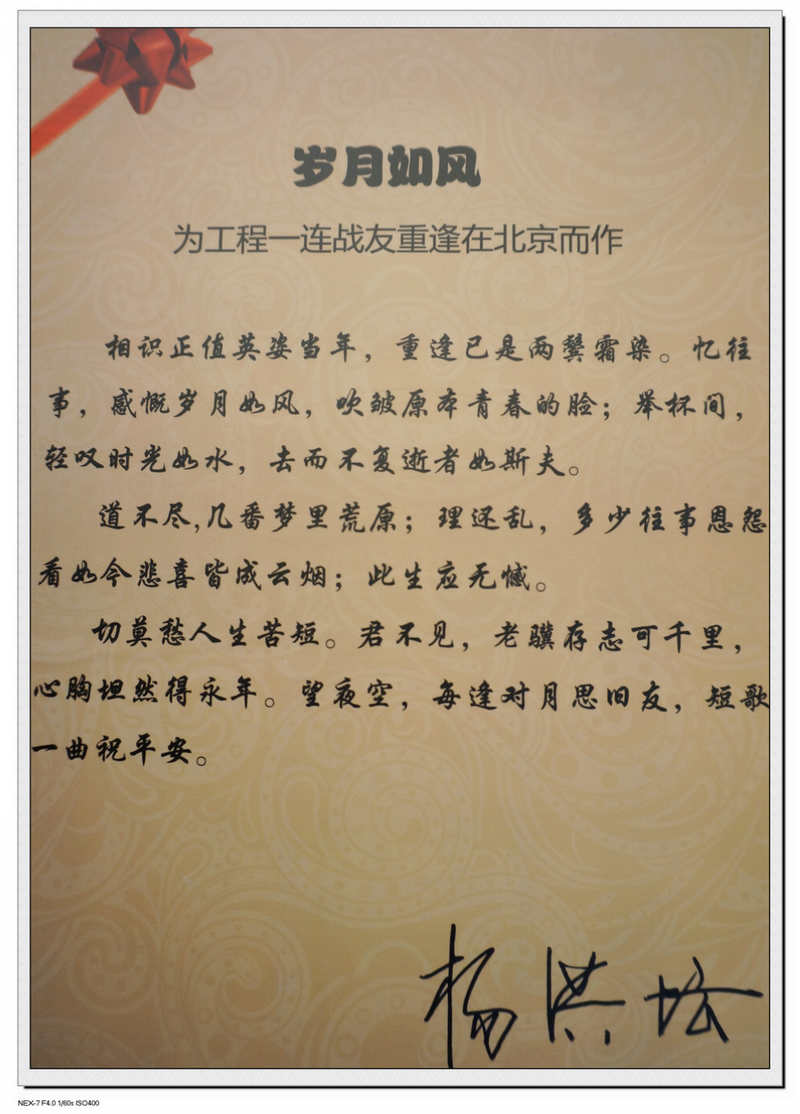 岁月如风
为工程一连战友重逢在北京而作
相识正值英姿当年，重逢已是两鬓霜染。忆往
事，感慨岁月如风，吹皱原本青春的脸；举杯间，
轻叹时光如水，去而不复逝者如斯夫。
道不尽,几番梦里荒原；理还乱，多少往事恩怨
看如今悲喜皆成云烟；此生应无憾。
切莫愁人生苦短。君不见，老骥存志可千里，
心胸坦然得永年。望夜空，每逢对月思旧友，短歌
一曲祝平安。
杨洪
NEX-7 F4.0 1/60s ISO400